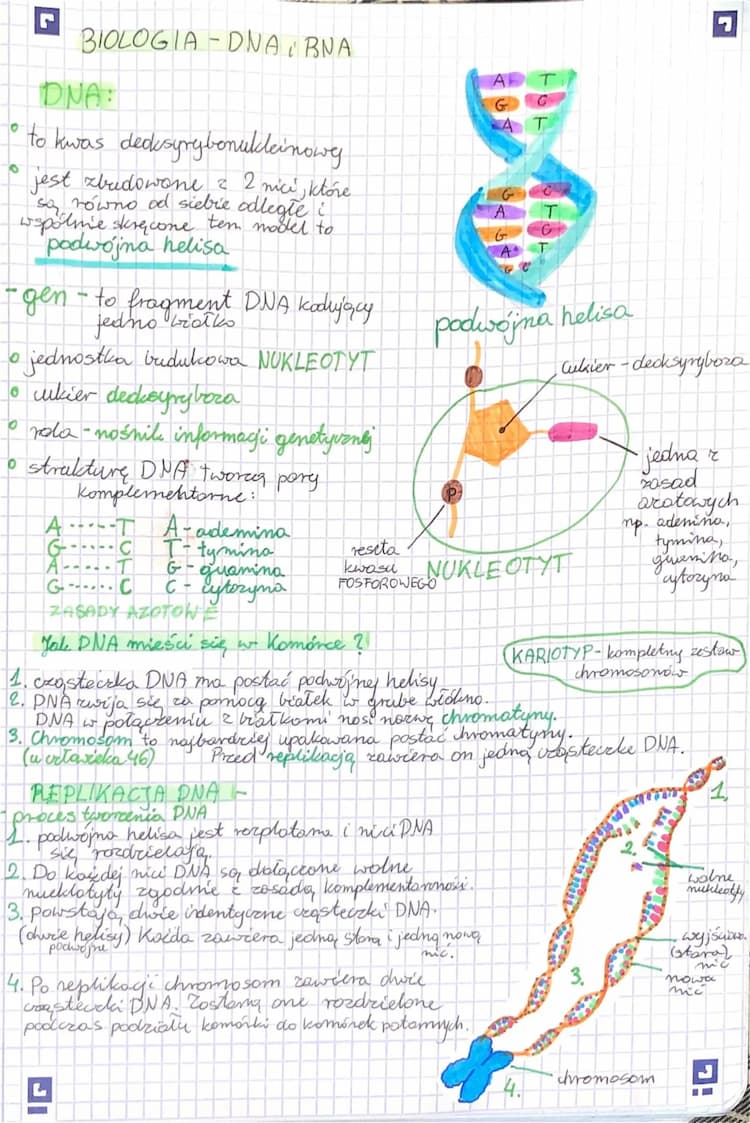 BIOLOGIA - DNA i RNA
DNA:
to kwas deoksyrybonukleinowy
jest zbudowane z 2 nici, które
są równo od siebie odległe i
wspólnie skręcone ten model to
podwójna helisa
- gen - to fragment DNA kodujący
jedno białko
jednostka budulkowa NUKLEOTYT
cukier deoksyryboza
rola - nośnik informacji genetycznej
strukturę DNA tworzą pary
komplementarne:
A-----T A - adenina
G-----C T - tymina
A-----T G - guanina
G-----C C - cytozyna
ZASADY AZOTOWE
A T
G C
A T
G C
A T
G C
A T
G C
podwójna helisa
cukier - deoksyryboza
P
jedna z
zasad
azotowych
np. adenina,
tymina,
guanina,
cytozyna
reszta
kwasu
FOSFOROWEGO
NUKLEOTYT
Jak DNA mieści się w komórce?
KARIOTYP - kompletny zestaw
chromosomów
1. cząsteczka DNA ma postać podwójnej helisy
2. DNA zwija się za pomocą białek w grube włókno.
DNA w połączeniu z białkami nosi nazwę chromatyny.
3. Chromosom to najbardziej upakowana postać chromatyny.
(u człowieka 46) Przed replikacją zawiera on jedną cząsteczkę DNA.
REPLIKACJA DNA -
- proces tworzenia DNA
1. podwójna helisa jest rozplatana i nici DNA
się rozdzielają.
2. Do każdej nici DNA są dołączone wolne
nukleotyty zgodnie z zasadą komplementarności.
3. Powstają dwie identyczne cząsteczki DNA.
(dwie helisy) Każda zawiera jedną starą i jedną nową
podwójne nić.
4. Po replikacji chromosom zawiera dwie
cząsteczki DNA. Zostaną one rozdzielone
podczas podziału komórki do komórek potomnych.
1.
2.
wolne
nukleotyty
wyjściowa
(stara)
nić
nowa
nić
3.
4.
chromosom